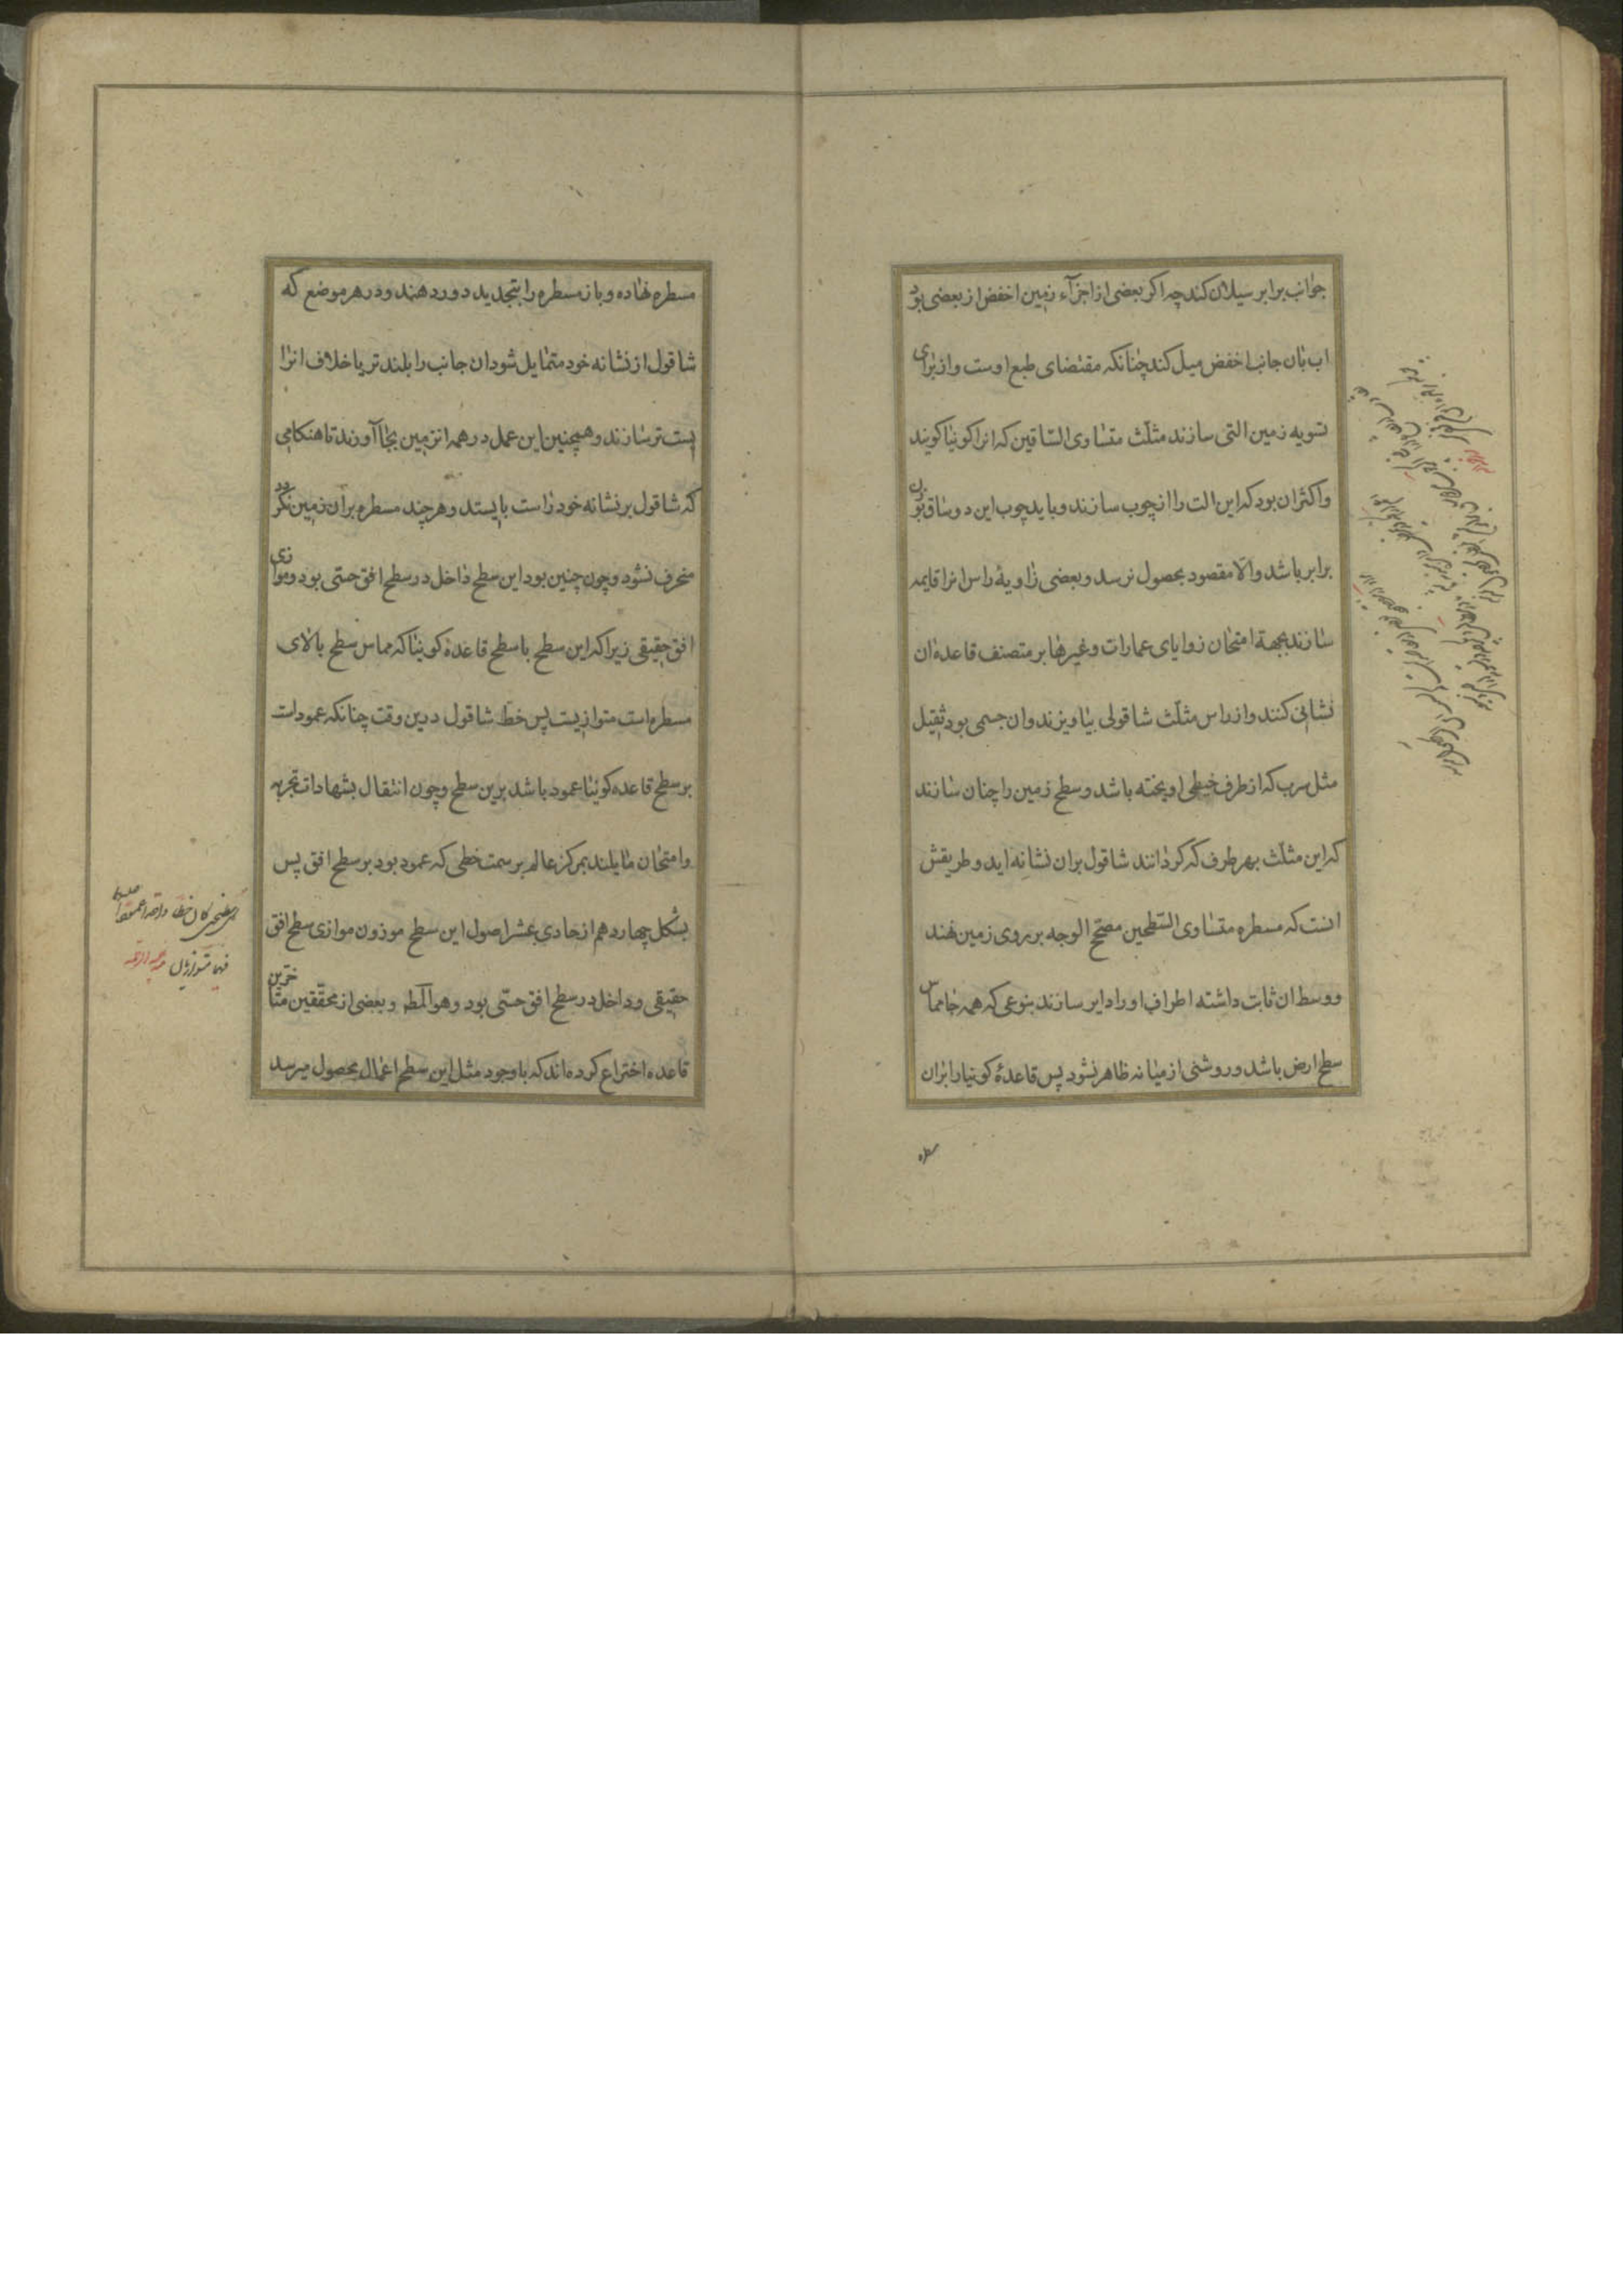 جوانب برابر سیلان کند چه اکر بعضی از اجزآء زمین اخفض از بعضی بود
اب بان جانب اخفض میل کند چنانکه مقتضای طبع اوست و از برای
تسویه زمین التی سازند مثلّث متساوی السّاقین که انرا کونیا کویند
و اکثر ان بود که این الت را از چوب سازند و باید چوب این دو ساق
برابر باشد والّا مقصود بحصول نرسد و بعضی زاویهٔ راس انرا قایمه
سازند بجهة امتحان زوایای عمارات و غیرها بر متصنف قاعده ان
نشانی کنند و از راس مثلّث شاقولی بیاویزند و ان جسمی بود ثقیل
مثل سرب که از طرف خیطی اویخته باشد و سطح زمین را چنان سازند
که این مثلّث بهر طرف که کردانند شاقول بران نشانه اید و طریقش
انست که مسطره متساوی السّطحین مصحّح الوجه بر روی زمین نهند
و وسط ان ثابت داشته اطراف او را دایر سازند بنوعی که همه جا مماس
سطح ارض باشد و روشنی از میانه ظاهر نشود پس قاعدهٔ کونیا را بران
مسطره
مسطره نهاده و باز مسطره را بتجدید دور دهند و در هر موضع که
شاقول از نشانه خود متمایل شود ان جانب را بلند تر یا خلاف انرا
پست تر سازند و همچنین این عمل در همه ان زمین بجا آورند تا هنکامی
که شاقول بر نشانه خود راست بایستد و هر چند مسطره بران زمین نکردد
منحرف نشود و چون چنین بود این سطح داخل در سطح افق حسّی بود و موازی
افق حقیقی زیرا که این سطح با سطح قاعدهٔ کونیا که مماس سطح بالای
مسطره است متوازیست پس خطّ شاقول درین وقت چنانکه عمود است
بر سطح قاعده کونیا عمود باشد برین سطح و چون اثقال بشهادات تجربه
و امتحان مایلند بمرکز عالم بر سمت خطی که عمود بود بر سطح افق پس
بشکل چهاردهم از حادی عشر اصول این سطح موزون موازی سطح افق
حقیقی و داخل در سطح افق حسّی بود و هو المط و بعضی از محقّقین متاخرین
قاعده اختراع کرده اند که با وجود مثل این سطح اعمال بحصول میرسد